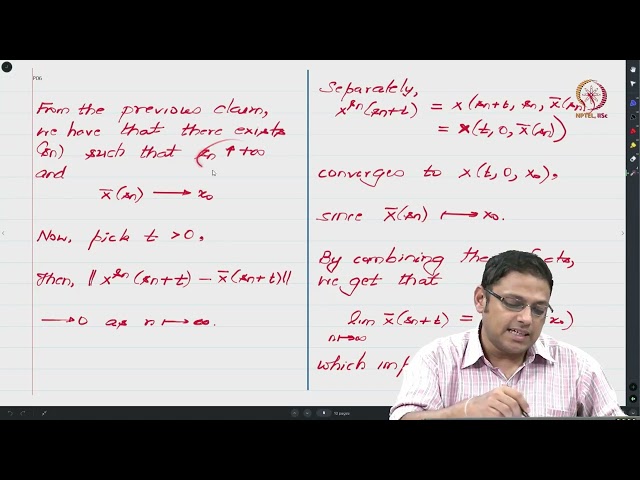 P06
From the previous claim,
we have that there exists
(sn) such that sn ↑ +∞
and
x̄(sn) ⟶ x₀
Now, pick t > 0,
Then, ‖ x^{sn}(sn+t) − x̄(sn+t) ‖
⟶ 0 as n ⟼ ∞.
Separately,
x^{sn}(sn+t) = x(sn+t, sn, x̄(sn))
= x(t, 0, x̄(sn))
converges to x(t, 0, x₀),
since x̄(sn) ⟼ x₀.
By combining facts,
we get that
lim x̄(sn+t) = x₀)
n⟼∞
which
NPTEL, IISc
10 pages